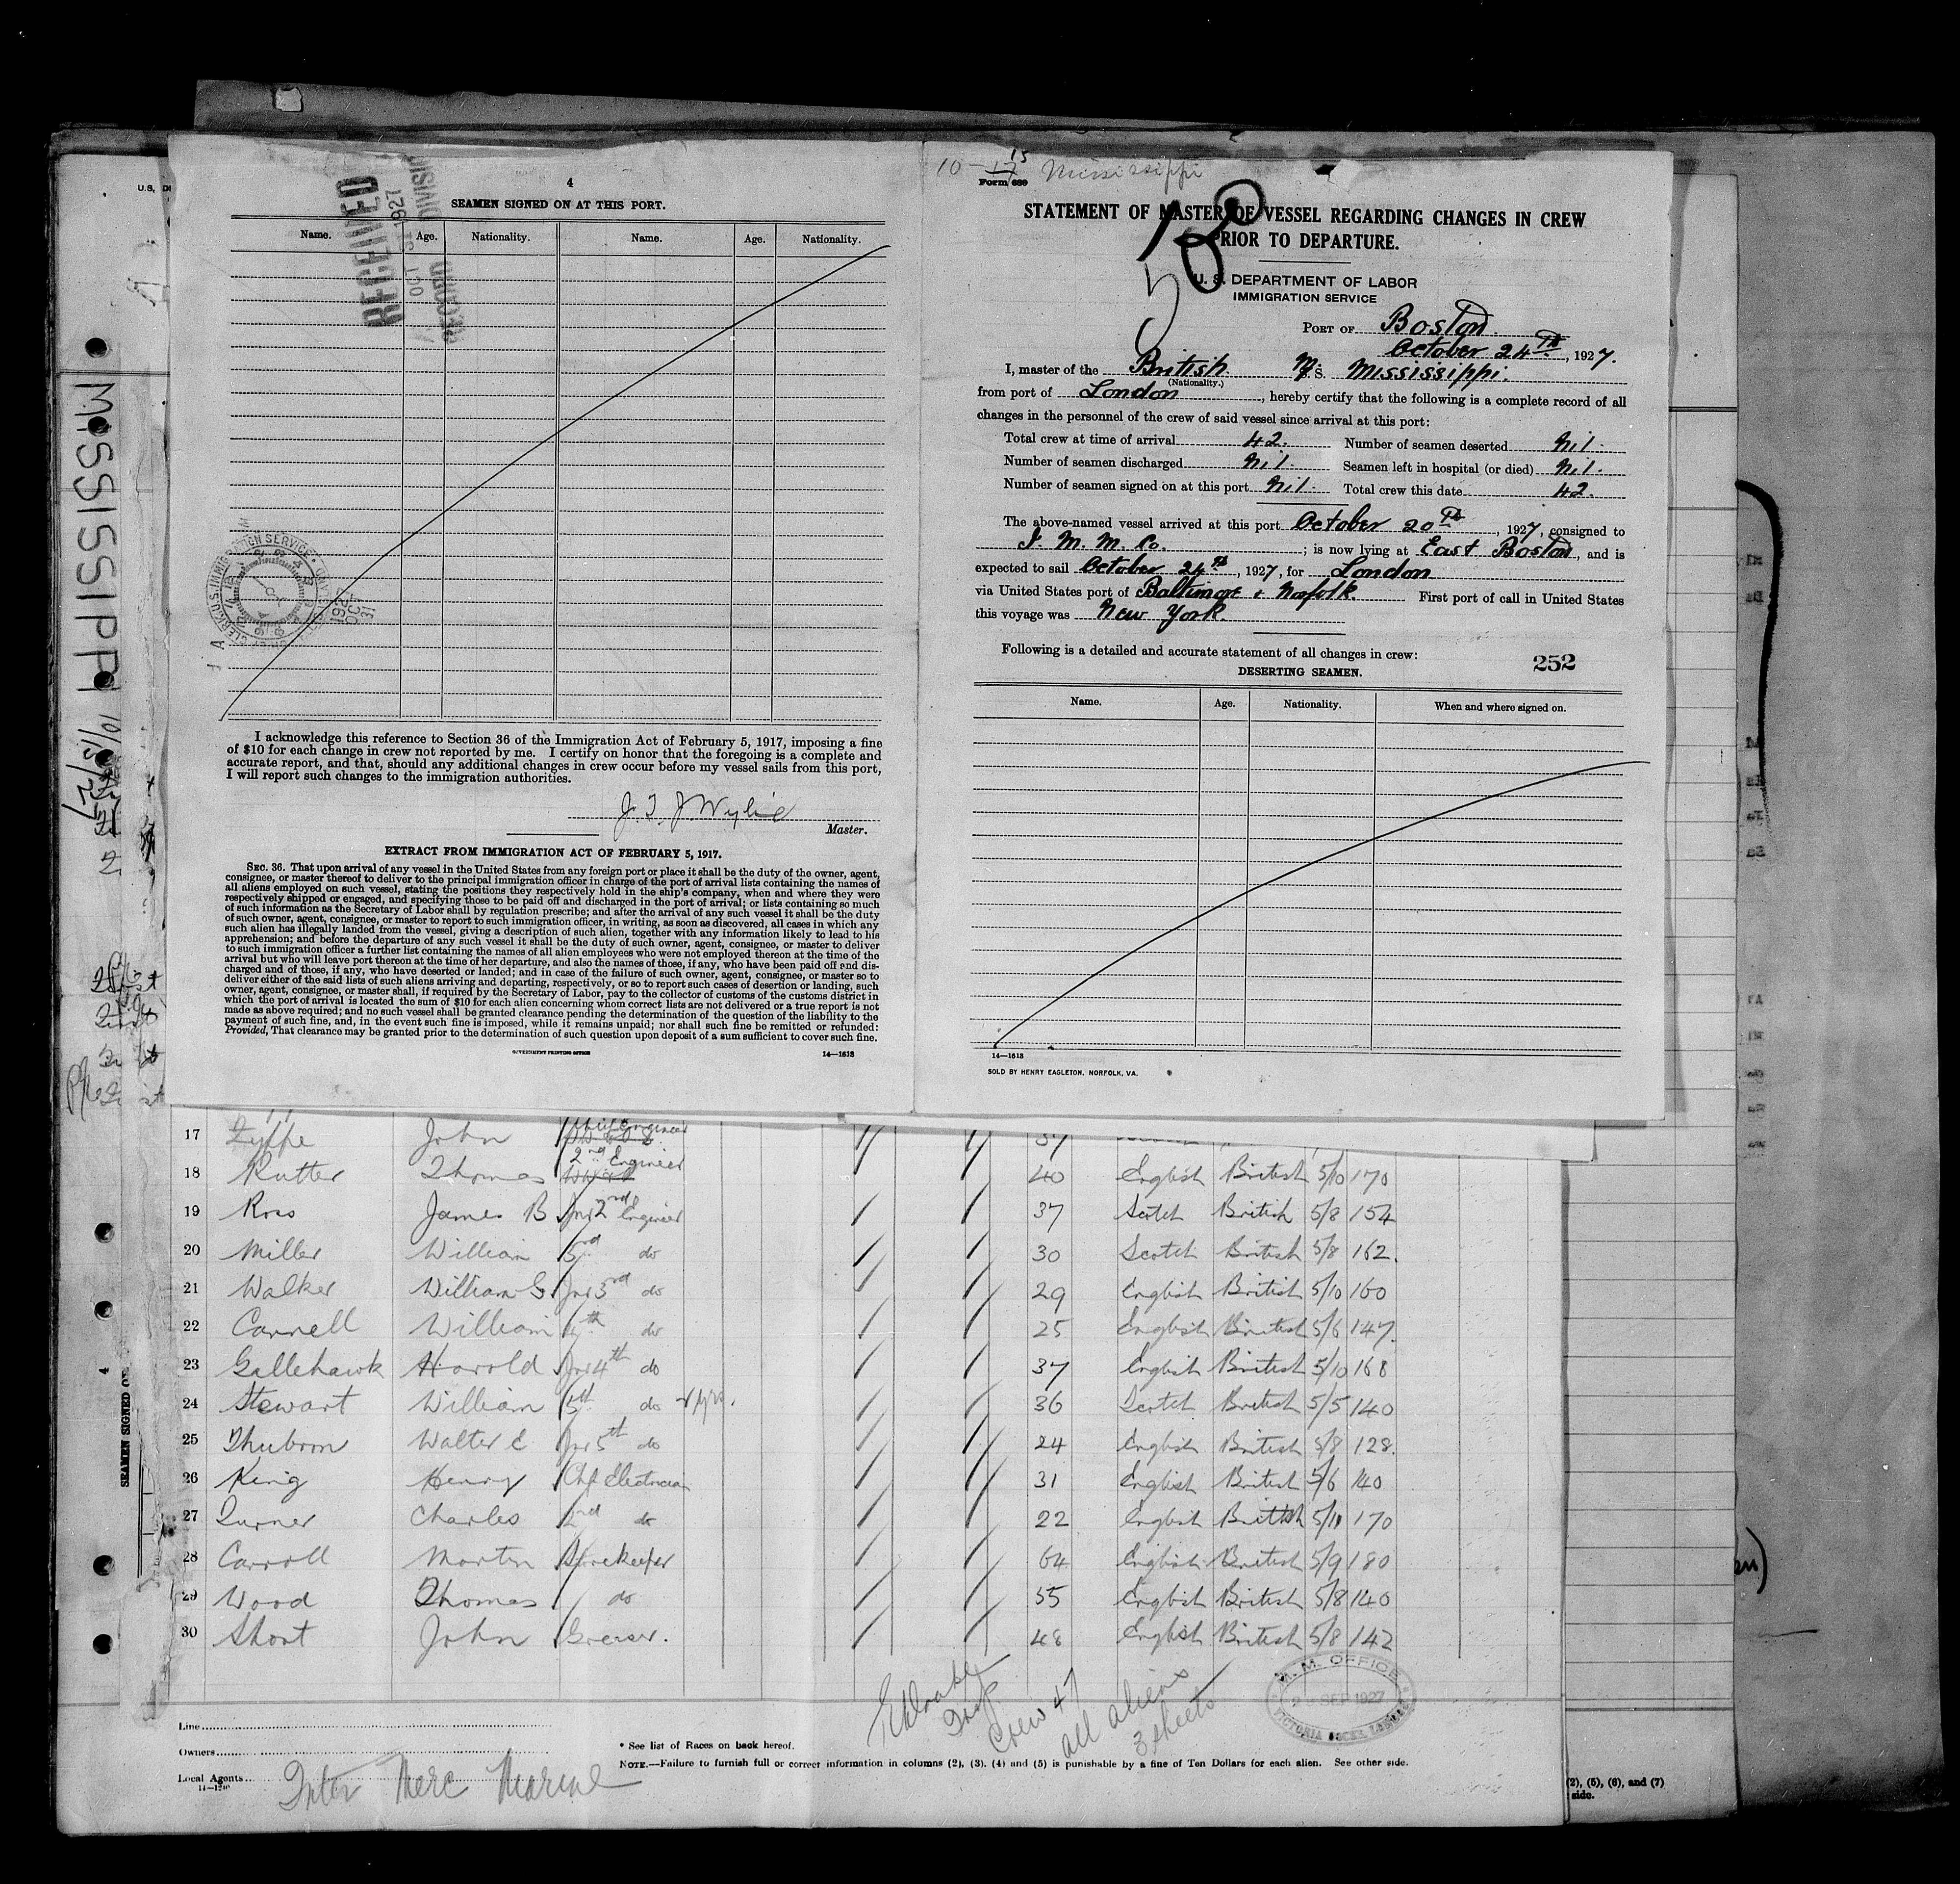 4
SEAMEN SIGNED ON AT THIS PORT.
Name. Age. Nationality. Name. Age. Nationality.
RECEIVED
OCT 31 1927
RECORD DIVISION
I acknowledge this reference to Section 36 of the Immigration Act of February 5, 1917, imposing a fine
of $10 for each change in crew not reported by me. I certify on honor that the foregoing is a complete and
accurate report, and that, should any additional changes in crew occur before my vessel sails from this port,
I will report such changes to the immigration authorities.
J. T. J Wylie
Master.
EXTRACT FROM IMMIGRATION ACT OF FEBRUARY 5, 1917.
SEC. 36. That upon arrival of any vessel in the United States from any foreign port or place it shall be the duty of the owner, agent,
consignee, or master thereof to deliver to the principal immigration officer in charge of the port of arrival lists containing the names of
all aliens employed on such vessel, stating the positions they respectively hold in the ship's company, when and where they were
respectively shipped or engaged, and specifying those to be paid off and discharged in the port of arrival; or lists containing so much
of such information as the Secretary of Labor shall by regulation prescribe; and after the arrival of any such vessel it shall be the duty
of such owner, agent, consignee, or master to report to such immigration officer, in writing, as soon as discovered, all cases in which any
such alien has illegally landed from the vessel, giving a description of such alien, together with any information likely to lead to his
apprehension; and before the departure of any such vessel it shall be the duty of such owner, agent, consignee, or master to deliver
to such immigration officer a further list containing the names of all alien employees who were not employed thereon at the time of the
arrival but who will leave port thereon at the time of her departure, and also the names of those, if any, who have been paid off and dis-
charged and of those, if any, who have deserted or landed; and in case of the failure of such owner, agent, consignee, or master so to
deliver either of the said lists of such aliens arriving and departing, respectively, or so to report such cases of desertion or landing, such
owner, agent, consignee, or master shall, if required by the Secretary of Labor, pay to the collector of customs of the customs district in
which the port of arrival is located the sum of $10 for each alien concerning whom correct lists are not delivered or a true report is not
made as above required; and no such vessel shall be granted clearance pending the determination of the question of the liability to the
payment of such fine, and, in the event such fine is imposed, while it remains unpaid; nor shall such fine be remitted or refunded:
Provided, That clearance may be granted prior to the determination of such question upon deposit of a sum sufficient to cover such fine.
GOVERNMENT PRINTING OFFICE 14—1613
10 - 17 15 Mississippi
Form 689
STATEMENT OF MASTER OF VESSEL REGARDING CHANGES IN CREW
PRIOR TO DEPARTURE.
U. S. DEPARTMENT OF LABOR
IMMIGRATION SERVICE
PORT OF Boston
October 24th, 1927.
I, master of the British M.S. Mississippi.
(Nationality.)
from port of London, hereby certify that the following is a complete record of all
changes in the personnel of the crew of said vessel since arrival at this port:
Total crew at time of arrival 42. Number of seamen deserted Nil.
Number of seamen discharged Nil. Seamen left in hospital (or died) Nil.
Number of seamen signed on at this port Nil. Total crew this date 42.
The above-named vessel arrived at this port October 20th, 1927, consigned to
I. M. M. Co.; is now lying at East Boston, and is
expected to sail October 24th, 1927, for London
via United States port of Baltimore & Norfolk First port of call in United States
this voyage was New York.
Following is a detailed and accurate statement of all changes in crew: 252
DESERTING SEAMEN.
Name. Age. Nationality. When and where signed on.
14—1613
SOLD BY HENRY EAGLETON, NORFOLK, VA.
MISSISSIPPI 10/15/27
4
SEAMEN SIGNED ON
17 John Chief Engineer 37
18 Rutter Thomas 2nd Engineer 40 English British 5/10 170
19 Ross James B Jnr 2nd Engineer 37 Scotch British 5/8 154
20 Miller William 3rd do 30 Scotch British 5/8 162.
21 Walker William G Jnr 3rd do 29 English British 5/10 160
22 Cannell William 4th do 25 English British 5/6 147.
23 Gallehawk Harold Jnr 4th do 37 English British 5/10 168
24 Stewart William 5th do 36 Scotch British 5/5 140
25 Thubron Walter E Jnr 5th do 24 English British 5/8 128.
26 King Henry Chf Electrician 31 English British 5/6 140
27 Turner Charles 2nd do 22 English British 5/10 170
28 Carroll Martin Storekeeper 64 English British 5/9 180
29 Wood Thomas do 55 English British 5/8 140
30 Short John Greaser. 48 English British 5/8 142
Crew 47
all aliens
3 sheets
I. M. M. OFFICE
SEP 1927
VICTORIA DOCKS, LONDON
Line
Owners
Local Agents Inter Merc Marine
* See list of Races on back hereof.
NOTE.—Failure to furnish full or correct information in columns (2), (3), (4) and (5) is punishable by a fine of Ten Dollars for each alien. See other side.
(2), (5), (6), and (7)
side.